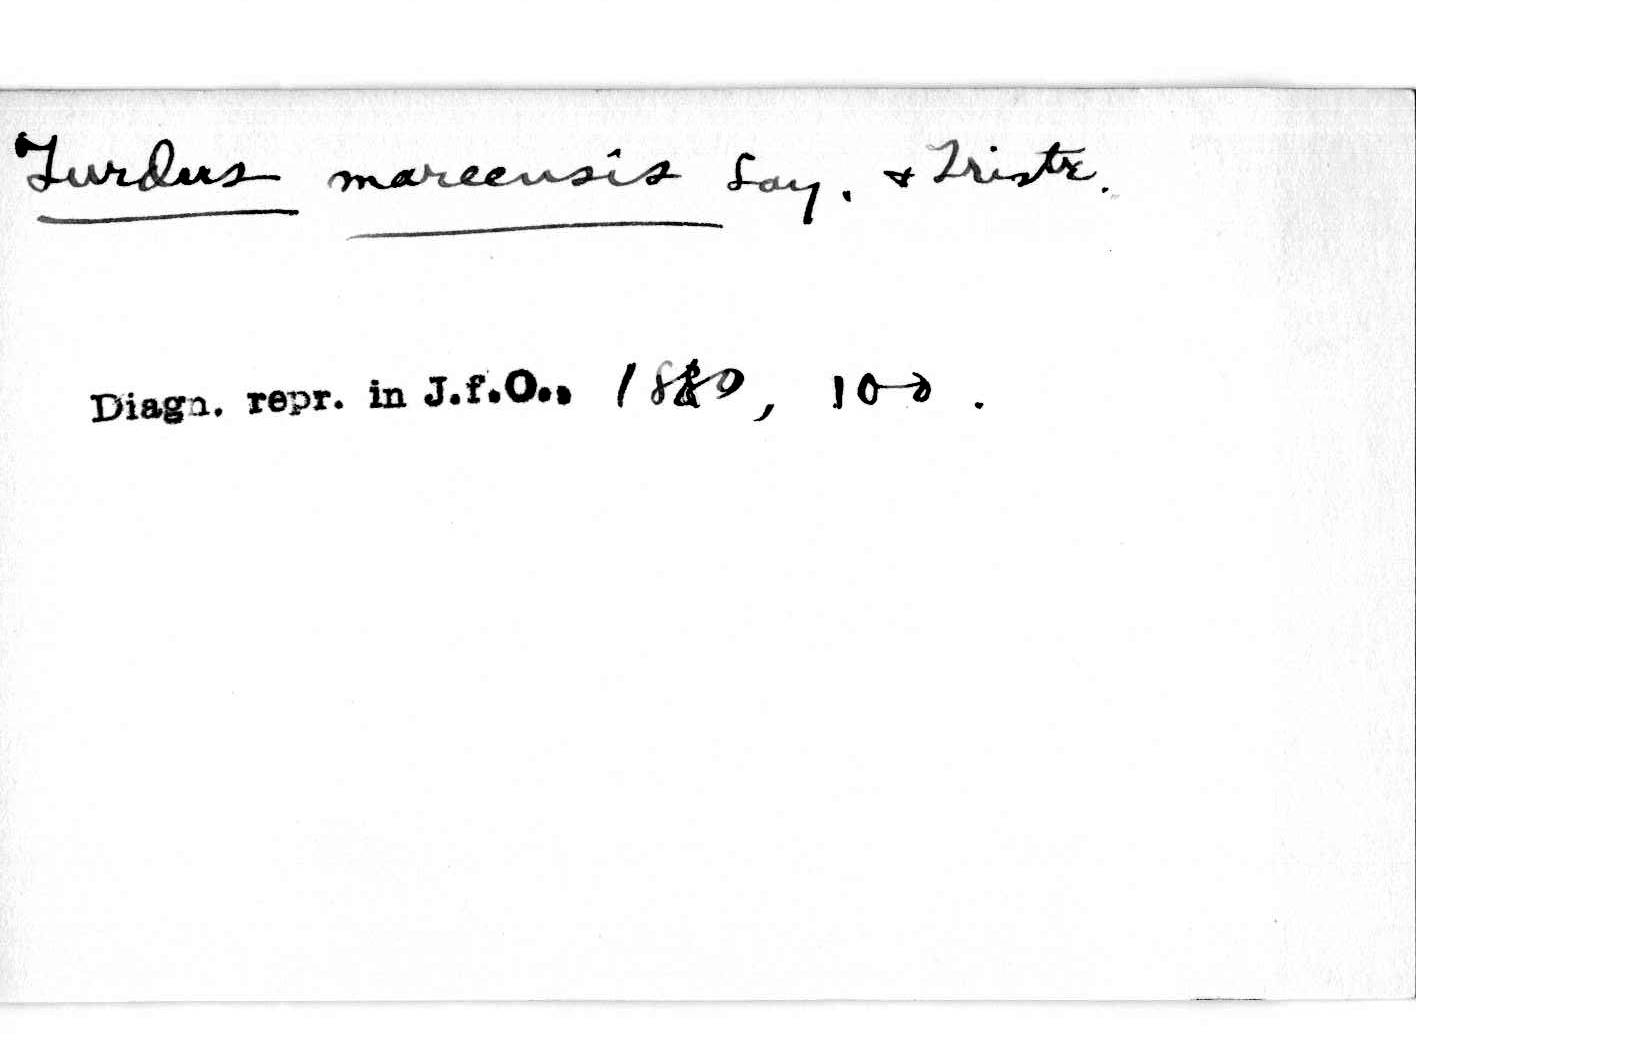 Turdus mareensis Lay. & Tristr.
Diagn. repr. in J.f.O., 1880, 100.